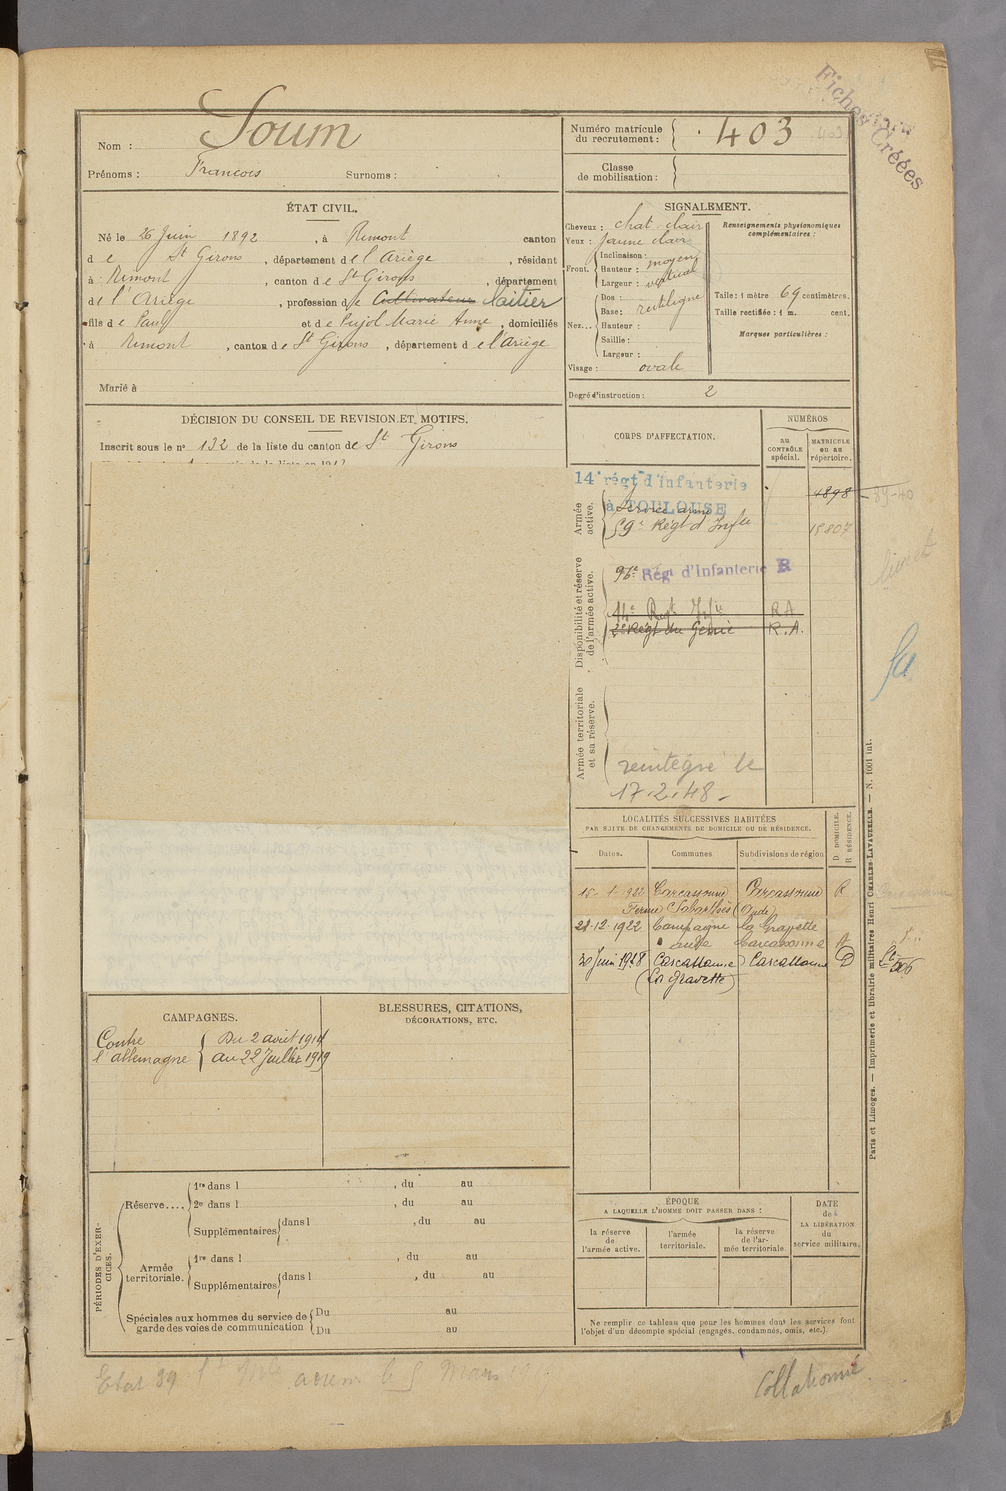 Fiches Créées
Nom : Soum
Prénoms : François Surnoms :
Numéro matricule du recrutement : 403
Classe de mobilisation :
ÉTAT CIVIL.
Né le 26 Juin 1892, à Rimont canton
de St Girons, département de l'Ariège, résidant
à Rimont, canton de St Girons, département
de l'Ariège, profession de Cultivateur laitier
fils de Paul et de Pujol Marie Anne, domiciliés
à Rimont, canton de St Girons, département de l'Ariège
Marié à
SIGNALEMENT.
Cheveux : chat. clair
Yeux : jaune clair
Front. Inclinaison :
Hauteur : moyen
Largeur : vertical
Nez... Dos : rectiligne
Base :
Hauteur :
Saillie :
Largeur :
Visage : ovale
Renseignements physionomiques complémentaires :
Taille : 1 mètre 69 centimètres.
Taille rectifiée : 1 m. cent.
Marques particulières :
Degré d'instruction : 2
DÉCISION DU CONSEIL DE REVISION ET MOTIFS.
Inscrit sous le n° 132 de la liste du canton de St Girons
CORPS D'AFFECTATION.
NUMÉROS
au CONTRÔLE spécial.
MATRICULE ou au répertoire.
Armée active.
14e régt d'infanterie
à TOULOUSE
Service armé
59e Régt d'Infie
4898
15807
Disponibilité et réserve de l'armée active.
96e Régt d'Infanterie R
14e Régt Infie R A
2e Régt du Génie R.A.
Armée territoriale et sa réserve.
réintégré le
17.2.48
LOCALITÉS SUCCESSIVES HABITÉES
PAR SUITE DE CHANGEMENTS DE DOMICILE OU DE RÉSIDENCE.
Dates. Communes Subdivisions de région D DOMICILE. R RÉSIDENCE.
15-1-922 Carcassonne Carcassonne R
Ferme Sabarthès (Aude)
21-12-1922 Campagne la Gravette
Aude Carcassonne
30 Juin 1928 Carcassonne Carcassonne D
(La Gravette)
CAMPAGNES.
Contre l'allemagne { Du 2 août 1914
au 22 Juillet 1919
BLESSURES, CITATIONS,
DÉCORATIONS, ETC.
PÉRIODES D'EXERCICES.
Réserve.... 1re dans l , du au
2e dans l , du au
Supplémentaires dans l , du au
Armée territoriale. 1re dans l , du au
Supplémentaires dans l , du au
Spéciales aux hommes du service de garde des voies de communication Du au
Du au
ÉPOQUE
A LAQUELLE L'HOMME DOIT PASSER DANS :
la réserve de l'armée active.
l'armée territoriale.
la réserve de l'armée territoriale
DATE de LA LIBÉRATION du service militaire.
Ne remplir ce tableau que pour les hommes dont les services font
l'objet d'un décompte spécial (engagés, condamnés, omis, etc.).
Paris et Limoges. — Imprimerie et librairie militaires Henri CHARLES-LAVAUZELLE. — N. 1001 int.
506
Etat 39
le 5 Mars
Collationné